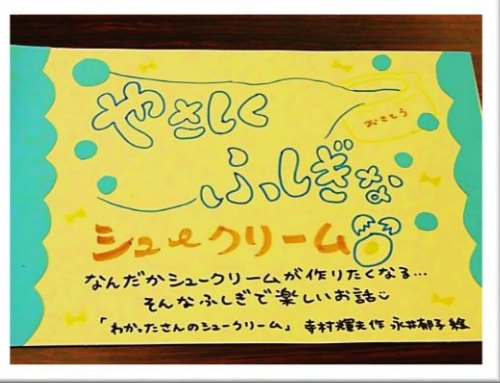 やさしく
おさとう
ふしぎな
シュークリーム
なんだかシュークリームが作りたくなる…
そんなふしぎで楽しいお話
「わかったさんのシュークリーム」 寺村輝夫作 永井郁子絵